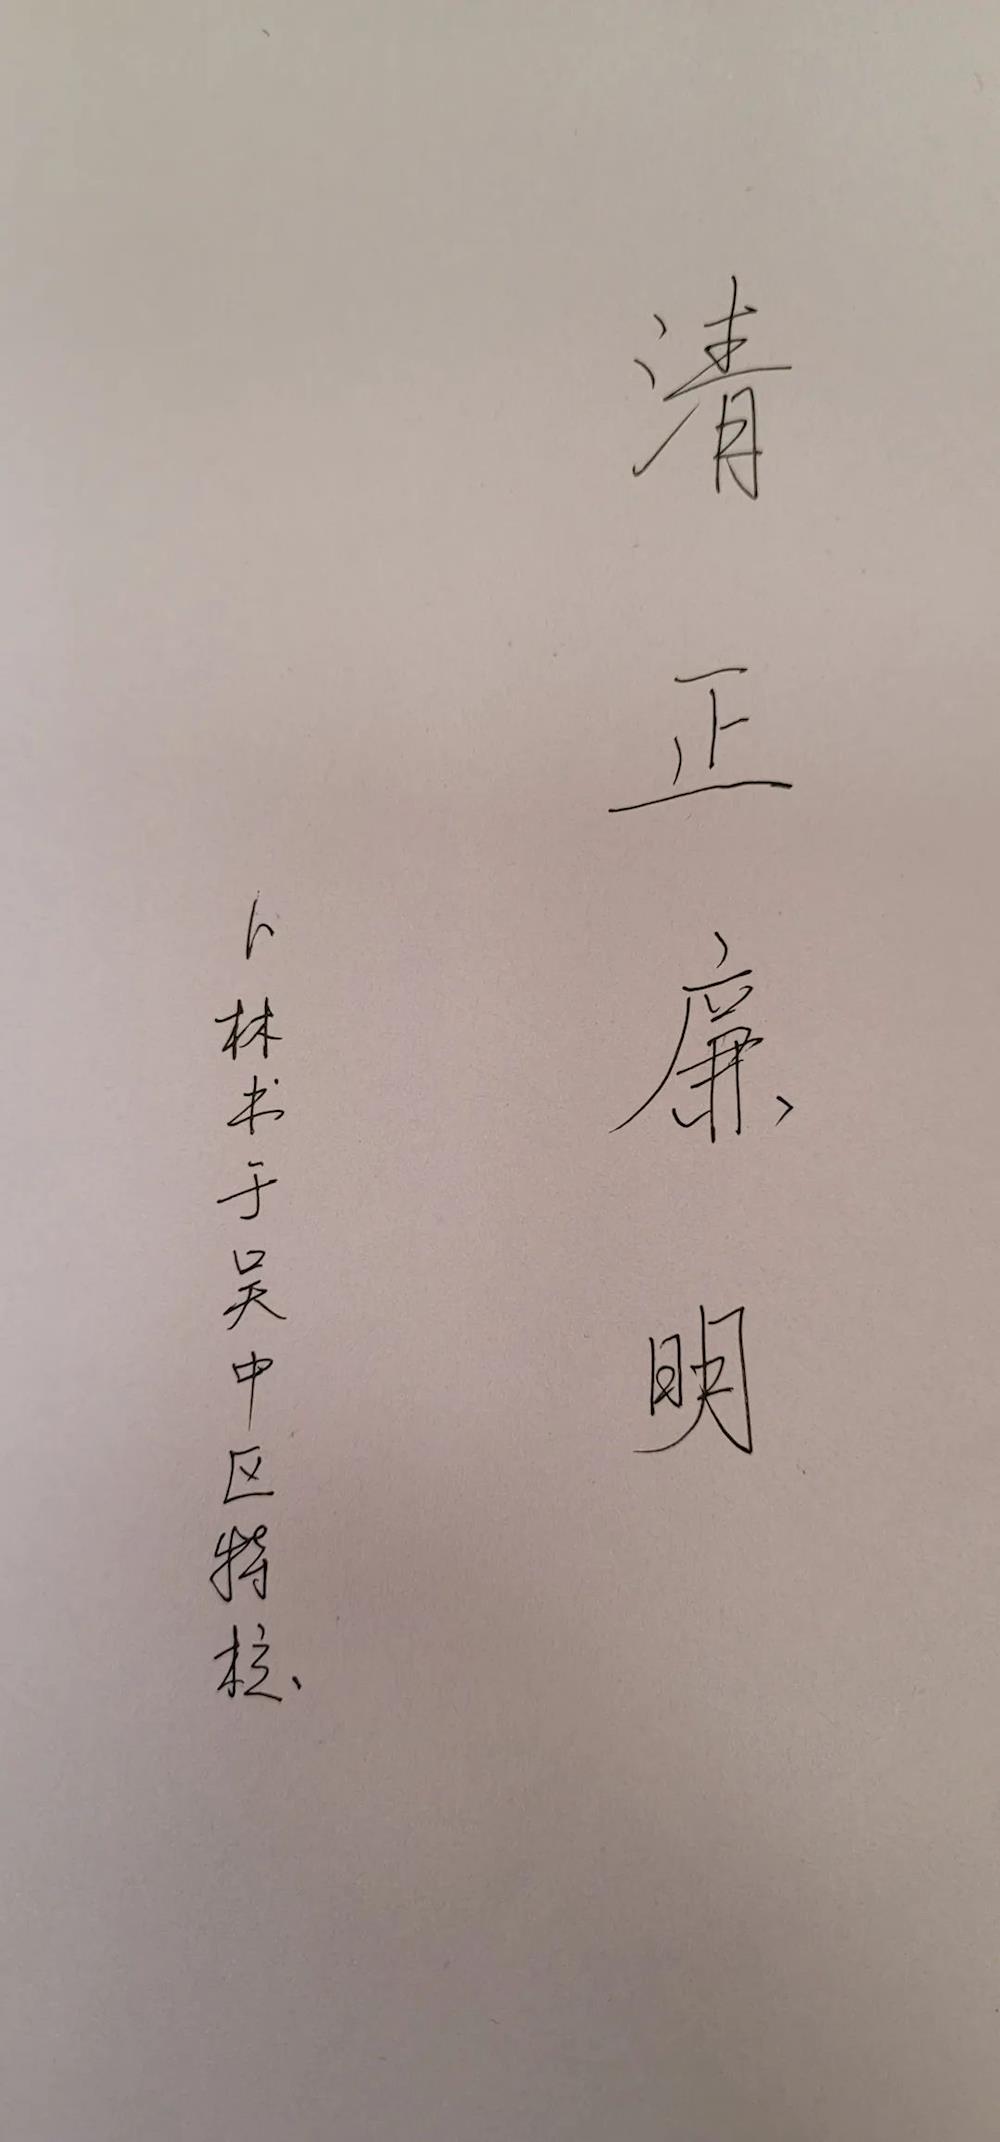 清正廉明
卜林书于吴中区特校